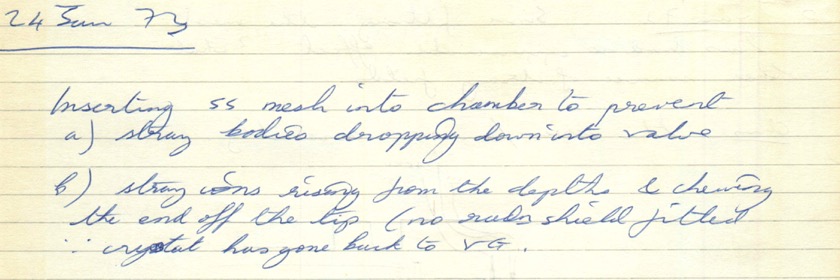 24 Jan 73
Inserting ss mesh into chamber to prevent
a) stray bodies dropping down into valve
b) stray ions rising from the depths & chewing
the end off the tip (no such shield fitted
∴ crystal has gone back to VG.